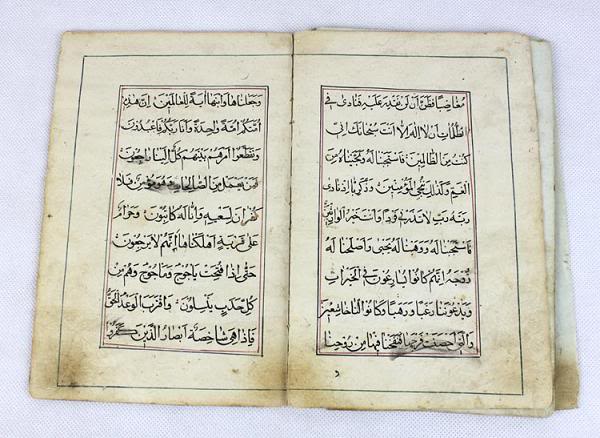 مغاضبا فظن أن لن نقدر عليه فنادى في
الظلمات أن لا إله إلا أنت سبحانك إني
كنت من الظالمين فاستجبنا له ونجيناه من
الغم وكذلك ننجي المؤمنين وزكريا إذ نادى
ربه رب لا تذرني فردا وأنت خير الوارثين
فاستجبنا له ووهبنا له يحيى وأصلحنا له
زوجه إنهم كانوا يسارعون في الخيرات
ويدعوننا رغبا ورهبا وكانوا لنا خاشعين
والتي أحصنت فرجها فنفخنا فيها من روحنا
وجعلناها وابنها آية للعالمين إن هذه
أمتكم أمة واحدة وأنا ربكم فاعبدون
وتقطعوا أمرهم بينهم كل إلينا راجعون
فمن يعمل من الصالحات وهو مؤمن فلا
كفران لسعيه وإنا له كاتبون وحرام
على قرية أهلكناها أنهم لا يرجعون
حتى إذا فتحت يأجوج ومأجوج وهم من
كل حدب ينسلون واقترب الوعد الحق
فإذا هي شاخصة أبصار الذين كفروا